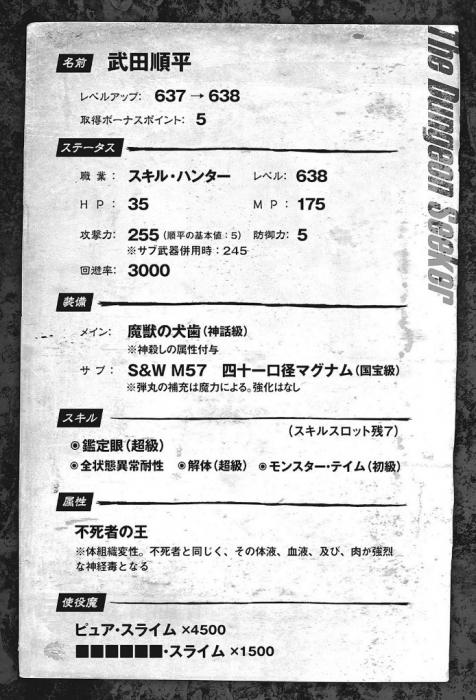 The Dungeon Seeker
名前 武田順平
レベルアップ: 637 → 638
取得ボーナスポイント: 5
ステータス
職業: スキル・ハンター レベル: 638
HP: 35 MP: 175
攻撃力: 255 (順平の基本値:5) 防御力: 5
※サブ武器併用時:245
回避率: 3000
装備
メイン: 魔獣の犬歯(神話級)
※神殺しの属性付与
サブ: S&W M57 四十一口径マグナム(国宝級)
※弾丸の補充は魔力による。強化はなし
スキル
(スキルスロット残7)
◉鑑定眼(超級)
◉全状態異常耐性 ◉解体(超級) ◉モンスター・テイム(初級)
属性
不死者の王
※体組織変性。不死者と同じく、その体液、血液、及び、肉が強烈
な神経毒となる
使役魔
ピュア・スライム ×4500
■■■■■■・スライム ×1500